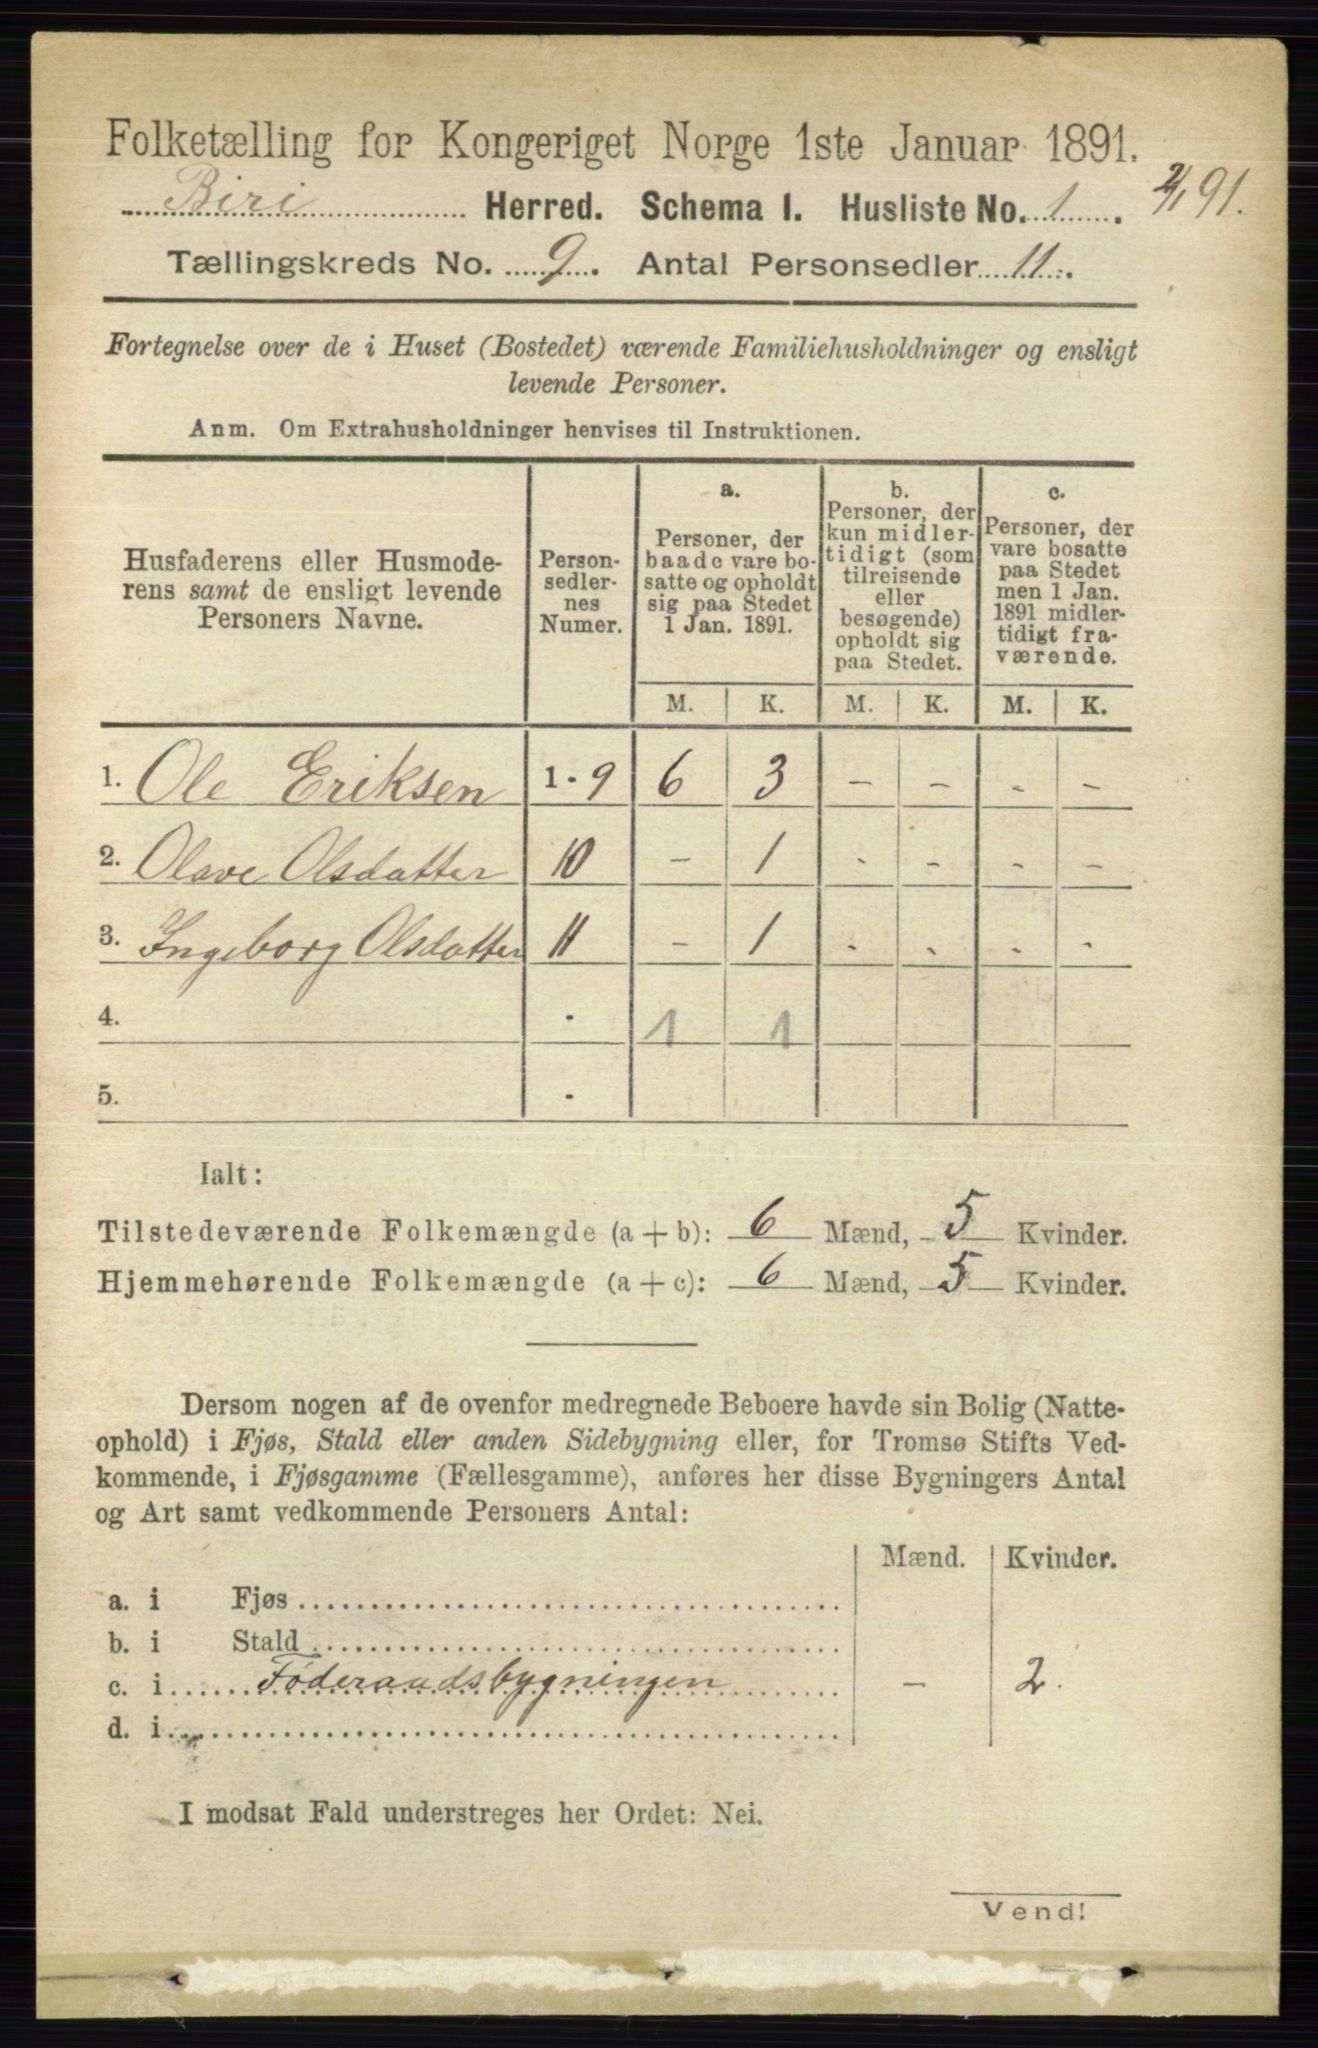 Folketælling for Kongeriget Norge 1ste Januar 1891.
Biri Herred. Schema I. Husliste No. 1. 2/1 91.
Tællingskreds No. 9. Antal Personsedler 11.
Fortegnelse over de i Huset (Bostedet) værende Familiehusholdninger og ensligt
levende Personer.
Anm. Om Extrahusholdninger henvises til Instruktionen.
Husfaderens eller Husmode-
rens samt de ensligt levende
Personers Navne.
Person-
sedler-
nes
Numer.
a.
Personer, der
baade vare bo-
satte og opholdt
sig paa Stedet
1 Jan. 1891.
b.
Personer, der
kun midler-
tidigt (som
tilreisende
eller
besøgende)
opholdt sig
paa Stedet.
c.
Personer, der
vare bosatte
paa Stedet
men 1 Jan.
1891 midler-
tidigt fra-
værende.
M. K. M. K. M. K.
1. Ole Eriksen 1 - 9 6 3 - - - -
2. Olave Olsdatter 10 - 1 - - - -
3. Ingeborg Olsdatter 11 - 1 - - - -
4. - 1 1
5. -
Ialt:
Tilstedeværende Folkemængde (a + b): 6 Mænd, 5 Kvinder.
Hjemmehørende Folkemængde (a + c): 6 Mænd, 5 Kvinder.
Dersom nogen af de ovenfor medregnede Beboere havde sin Bolig (Natte-
ophold) i Fjøs, Stald eller anden Sidebygning eller, for Tromsø Stifts Ved-
kommende, i Fjøsgamme (Fællesgamme), anføres her disse Bygningers Antal
og Art samt vedkommende Personers Antal:
Mænd. Kvinder.
a. i Fjøs
b. i Stald
c. i Føderaadsbygningen - 2.
d. i
I modsat Fald understreges her Ordet: Nei.
Vend!